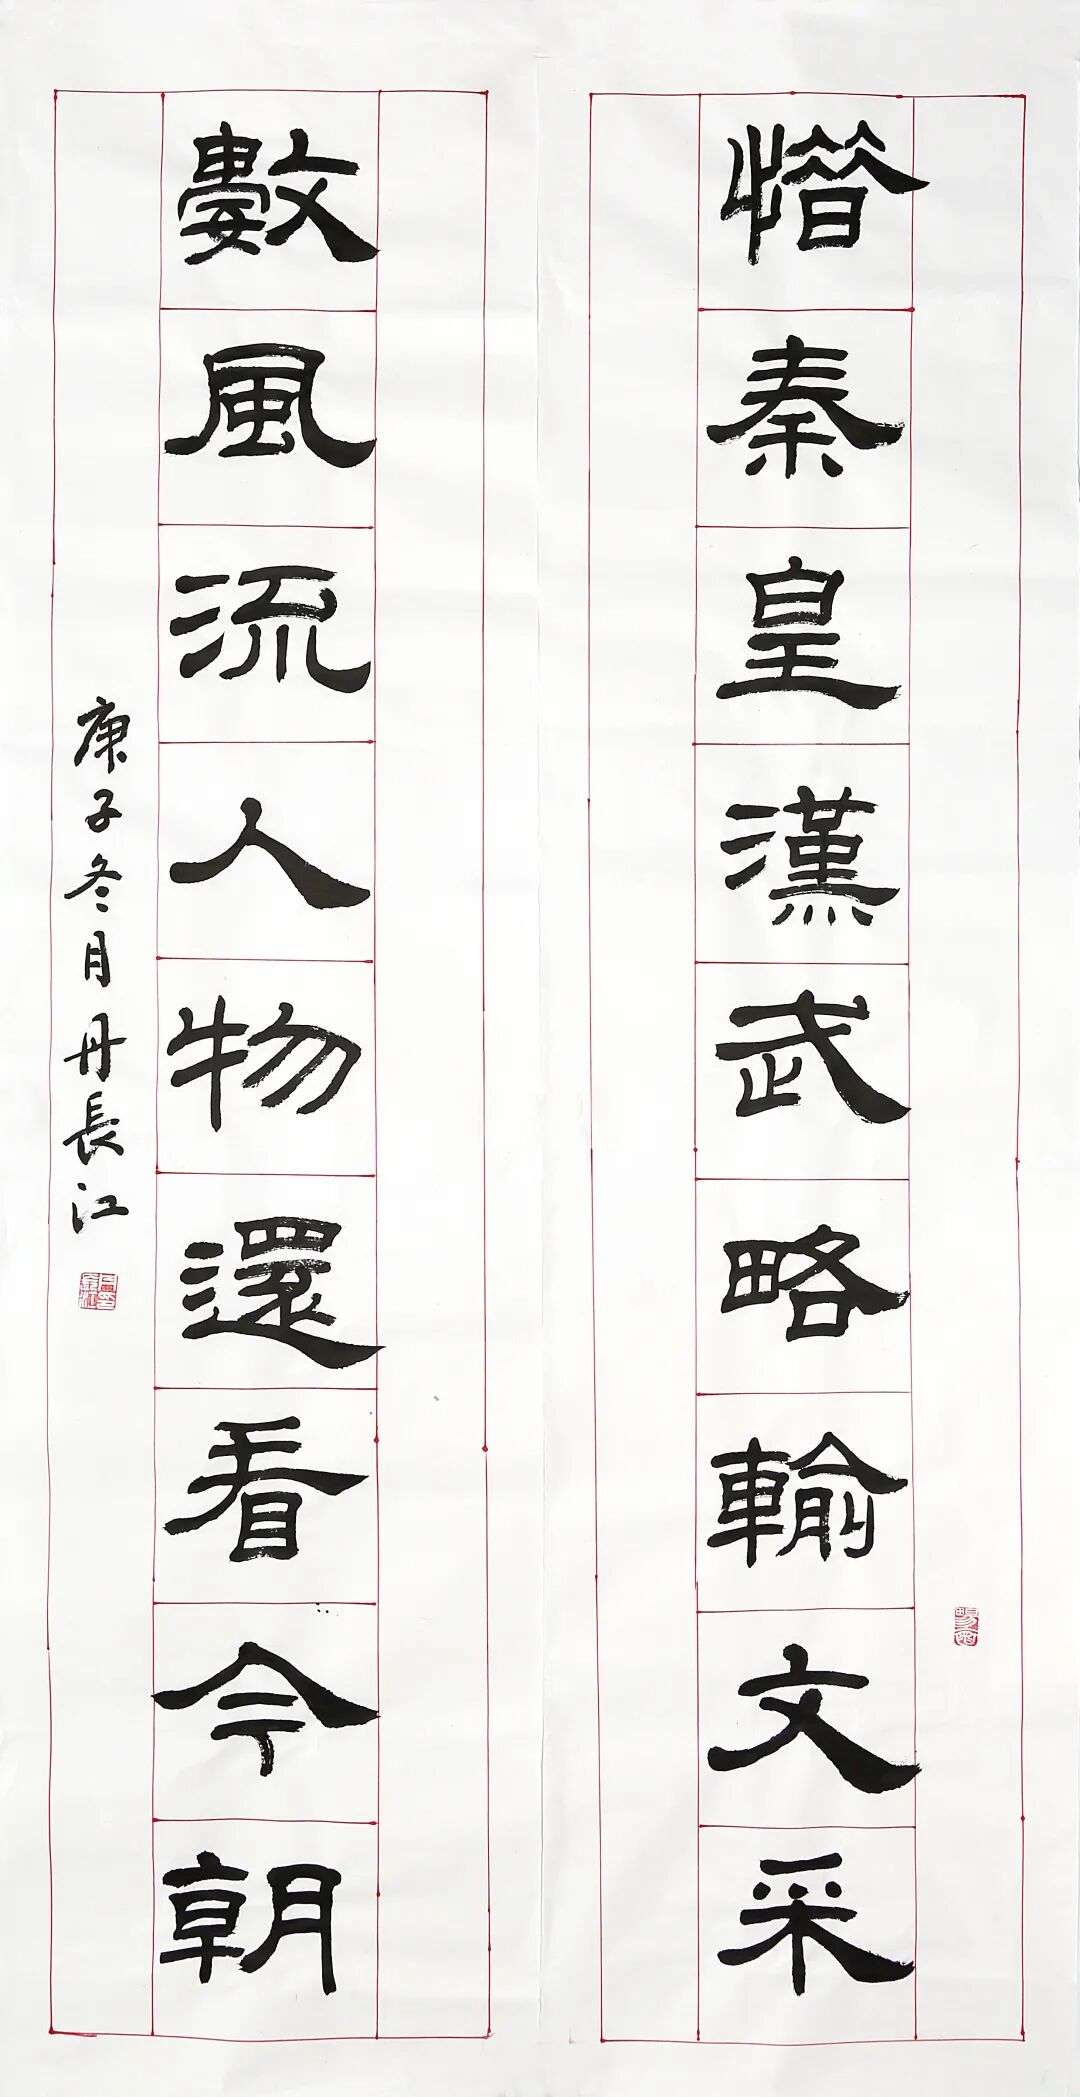 惜秦皇漢武略輸文采
數風流人物還看今朝
庚子冬月丹長江